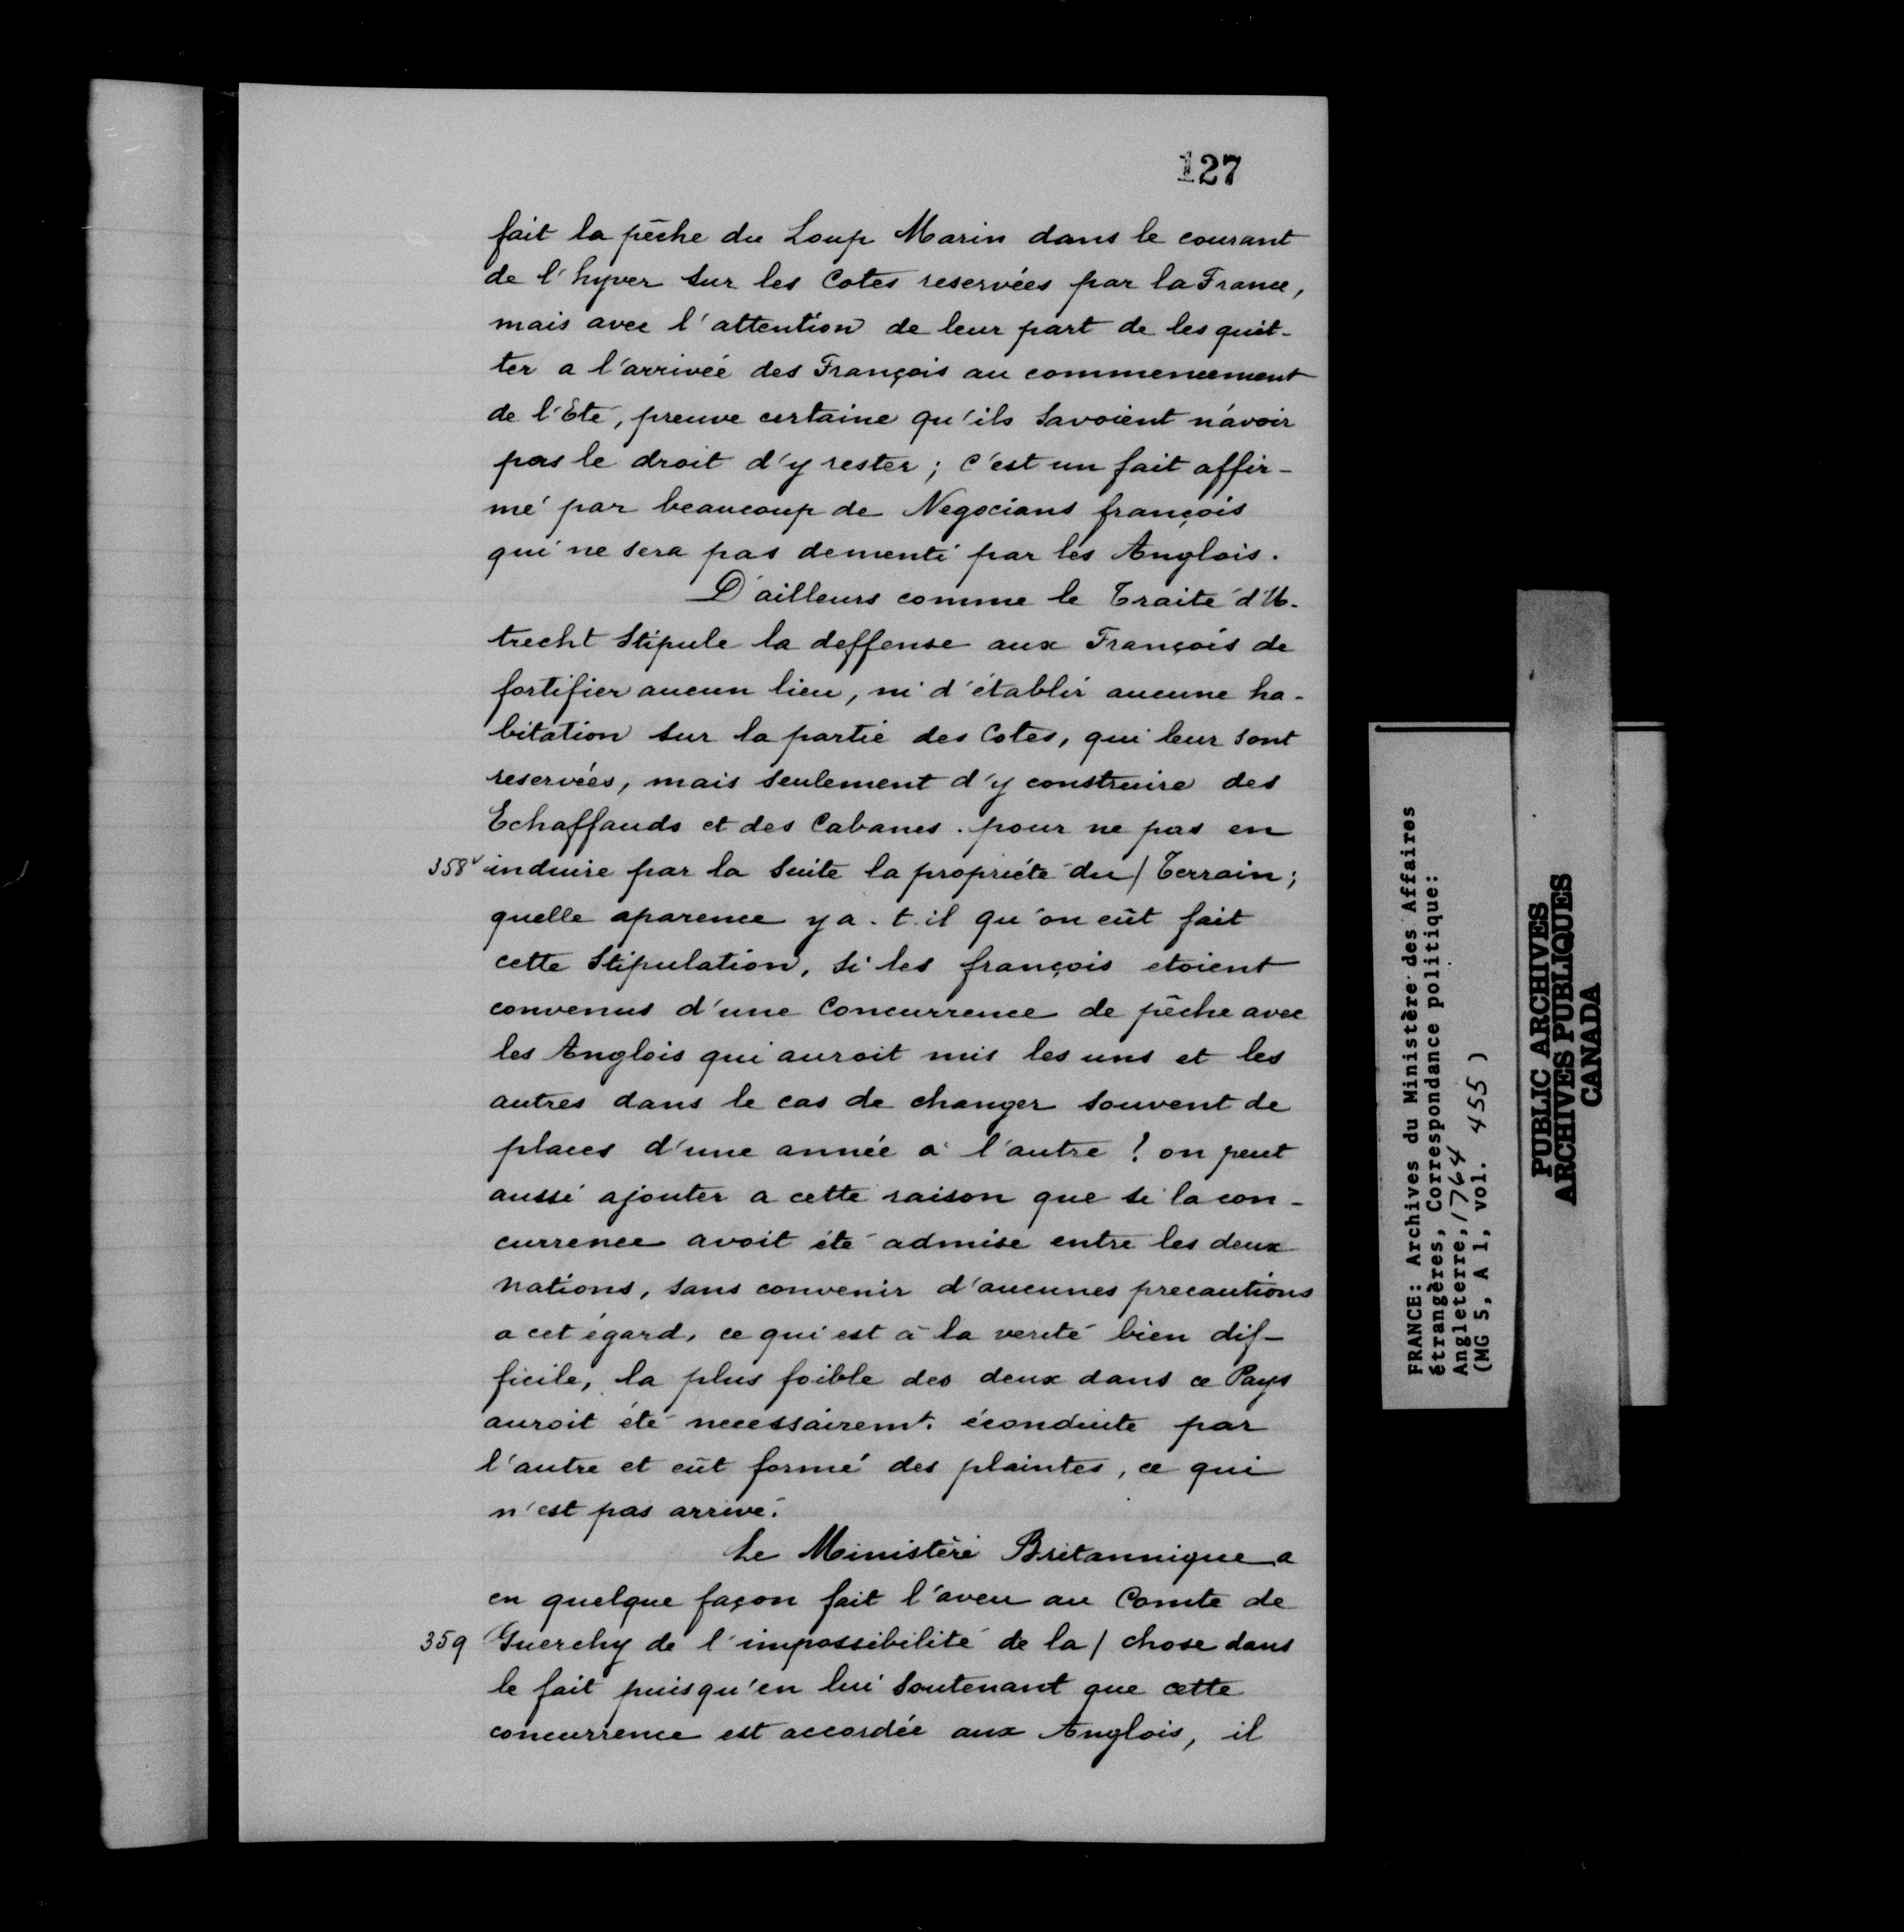 127
fait la pêche du Loup Marin dans le courant
de l'hyver sur les Cotes reservées par la France,
mais avec l'attention de leur part de les quit-
ter a l'arrivée des François au commencement
de l'Eté, preuve certaine qu'ils savoient n'avoir
pas le droit d'y rester ; C'est un fait affir-
mé par beaucoup de Negocians françois
qui ne sera pas dementi par les Anglois.
D'ailleurs comme le Traité d'U-
trecht Stipule la deffense aux François de
fortifier aucun lieu, ni d'établir aucune ha-
bitation sur la partie des Cotes, qui leur sont
reservées, mais seulement d'y construire des
Echaffauds et des Cabanes. pour ne pas en
358v induire par la suite la propriété du / Terrain ;
quelle aparence y a-t-il qu'on eût fait
cette Stipulation, si les françois etoient
convenus d'une Concurrence de pêche avec
les Anglois qui auroit mis les uns et les
autres dans le cas de changer souvent de
places d'une année à l'autre ? on peut
aussi ajouter a cette raison que si la con-
currence avoit été admise entre les deux
nations, sans convenir d'aucunes precautions
a cet égard, ce qui est à la verité bien dif-
ficile, la plus foible des deux dans ce Pays
auroit été necessairemt. éconduite par
l'autre et eût formé des plaintes, ce qui
n'est pas arrivé.
Le Ministère Britannique a
en quelque façon fait l'aveu au Comte de
359 Guerchy de l'impossibilité de la / chose dans
le fait puisqu'en lui soutenant que cette
concurrence est accordée aux Anglois, il
FRANCE: Archives du Ministère des Affaires
étrangères, Correspondance politique:
Angleterre, 1764
(MG 5, A 1, vol. 455 )
PUBLIC ARCHIVES
ARCHIVES PUBLIQUES
CANADA